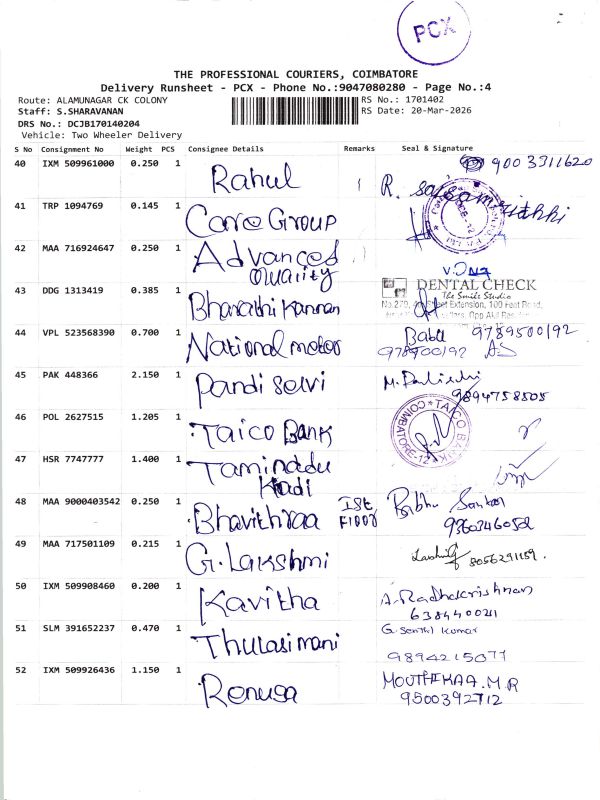 PCX
THE PROFESSIONAL COURIERS, COIMBATORE
Delivery Runsheet - PCX - Phone No.:9047080280 - Page No.:4
Route: ALAMUNAGAR CK COLONY
RS No.: 1701402
Staff: S.SHARAVANAN
RS Date: 20-Mar-2026
DRS No.: DCJB170140204
Vehicle: Two Wheeler Delivery
S No Consignment No Weight PCS Consignee Details Remarks Seal & Signature
40 IXM 509961000 0.250 1 Rahul 9003311620
41 TRP 1094769 0.145 1 Care Group
42 MAA 716924647 0.250 1 Advanced
Quality
43 DDG 1313419 0.385 1 Bharathi Kannan DENTAL CHECK
The Smile Studio
44 VPL 523568390 0.700 1 National motor Babu 9789500192
45 PAK 448366 2.150 1 Pandi Selvi 9894758505
46 POL 2627515 1.205 1 Taico Bank COIMBATORE-12 TAICO BANK
47 HSR 7747777 1.400 1 Taminadu
Kadi
48 MAA 9000403542 0.250 1 Bhavithraa Ist Floor Prabhu Sankar
9360346052
49 MAA 717501109 0.215 1 G. Lakshmi 8056291189
50 IXM 509908460 0.200 1 Kavitha A. Radhakrishnan
51 SLM 391652237 0.470 1 Thulasimani G. Senthil Kumar
9894215077
52 IXM 509926436 1.150 1 Renuga MOUTHIKAA.M.R
9500392712